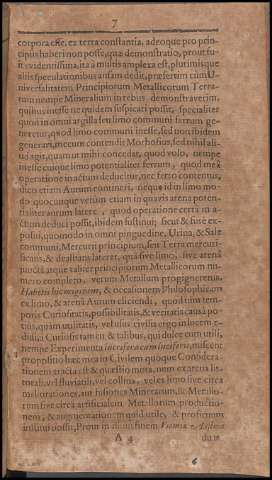 7
corpora esse, ex terra constantia, adeoque pro prin-
cipiis haberi non posse, quæ demonstratio, prout fu-
it evidentissima, ita à multis amplexa est, plurimisque
aliis speculationibus ansam dedit, præsertim cùm U-
niversalitatem Principiorum Metallicorum Terra-
rum nempe Mineralium in rebus, demonstraverim,
quibus inesse ne quidem suspicari posset, specialiter
quod in omni argilla seu limo communi ferrum ge-
neretur, quod limo communi inesse, sed non ibidem
generari, mecum contendit Morhofius, sed nihil ali-
ud agit, quam ut mihi concedat, quod volo, nempe
inesse cuique limo potentialiter ferrum, quod meâ
operatione in actum deducitur, nec ferro contentus,
dico etiam Aurum contineri, neque id in limo mo-
do quocunque verum etiam in quavis arena poten-
tialiter aurum latere, quod operatione certâ in a-
ctum deduci possit, ibidem sustinui, sicut & fusè ex-
posui, quomodo in omni pinguedine, Urina, & Sale
communi, Mercurii principium, seu Terra mercuri-
ficans, & dealbans lateret, quâ sive limo, sive arenæ
junctâ atque taliter principiorum Metallicorum nu-
mero completo, verum Metallum propigneretur.
Habitis hic in genere, & occasionem Philosophicam
ex limo, & arenâ Aurum eliciendi, quod tum tem-
poris Curiositatis, possibilitatis, & veritatis causâ po-
tiùs, quàm utilitatis, velut us civilis ergo in lucem e-
didi: a Curiosis tamen & talibus, qui dulce cum utili,
nempe Experimenta lucifera cum luciferis, miscent
proposito hæc mea in Civilem quoque Considera-
tionem tracta est & quæstio mota, num ex arena lit-
torali, vel fluviatili, vel collina, vel ex limo sive circa
maturationes, aut fusiones Minerarum, & Metallo-
rum sive circa artificialem Metallorum productio-
nem, & augmentationem quid utile, & proficuum
institui possit, Prout in eum finem
A 4
6